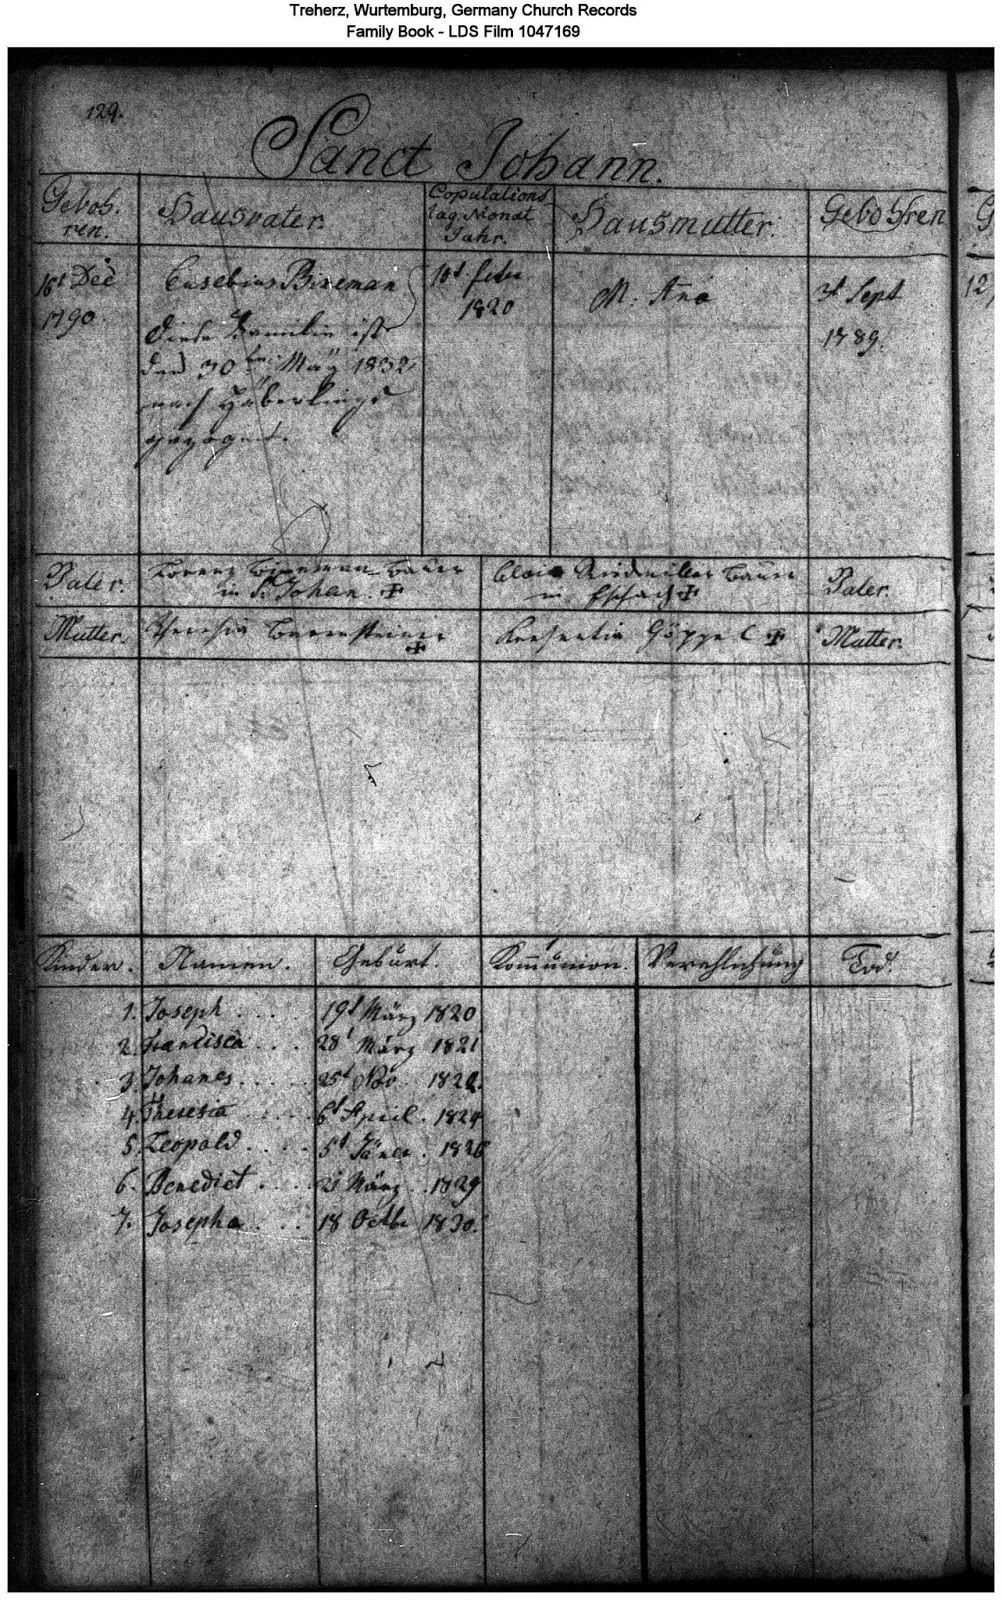 Treherz, Wurtemburg, Germany Church Records
Family Book - LDS Film 1047169
129.
Sanct Johann.
Geboh. ren. Hausvater. Copulations tag. Monat Jahr. Hausmutter. Gebohren
16t Dec 1790. Eusebius Bixeman 10t febr 1820 M. Ana 3t Sept 1789.
Diese Familie ist
den 30ten May 1832
nach
gezogen.
Vater. Lorenz Bixeman Bauer in St. Johan. Alois Riedmiller Bauer in Vater.
Mutter. Theresia Kresentia Göppel Mutter.
Kinder. Namen. Geburt. Kommunion. Verehlichung Tod.
1. Joseph .... 19t März 1820
2. Francisca ... 28t März 1821
3. Johanes .... 25t 1822.
4. Theresia .... 6t April. 1824
5. Leopold .... 5t Jäner. 1826
6. Benedict .... März .. 1829
7. Josepha .... 18 Octbr 1830.